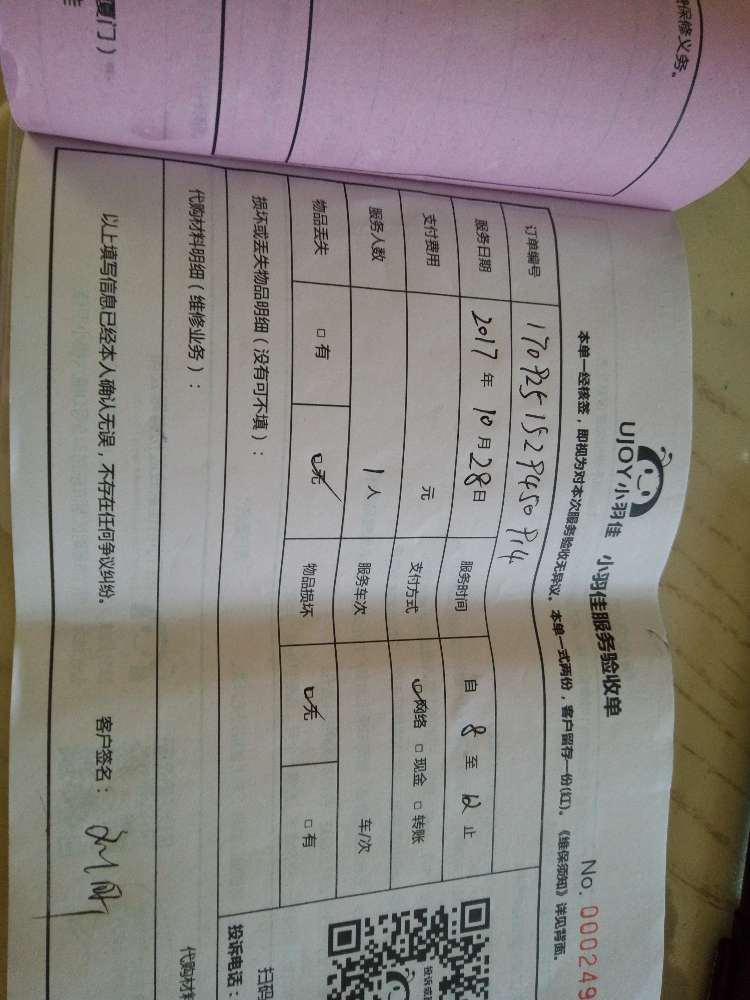 UJOY小羽佳 小羽佳服务验收单
No. 000249
本单一经核签，即视为对本次服务验收无异议。本单一式两份，客户留存一份(红)。《维保须知》详见背面。
订单编号
服务日期 2017年10月28日 服务时间 自 8 至 12 止
支付费用 元 支付方式 ☑网络 □现金 □转账
服务人数 1人 服务车次 车/次
物品丢失 □有 ☑无 物品损坏 ☑无 □有
损坏或丢失物品明细（没有可不填）：
代购材料明细（维修业务）：
以上填写信息已经本人确认无误，不存在任何争议纠纷。 客户签名：
扫码
投诉电话：
代购材料
保修义务。
厦门）